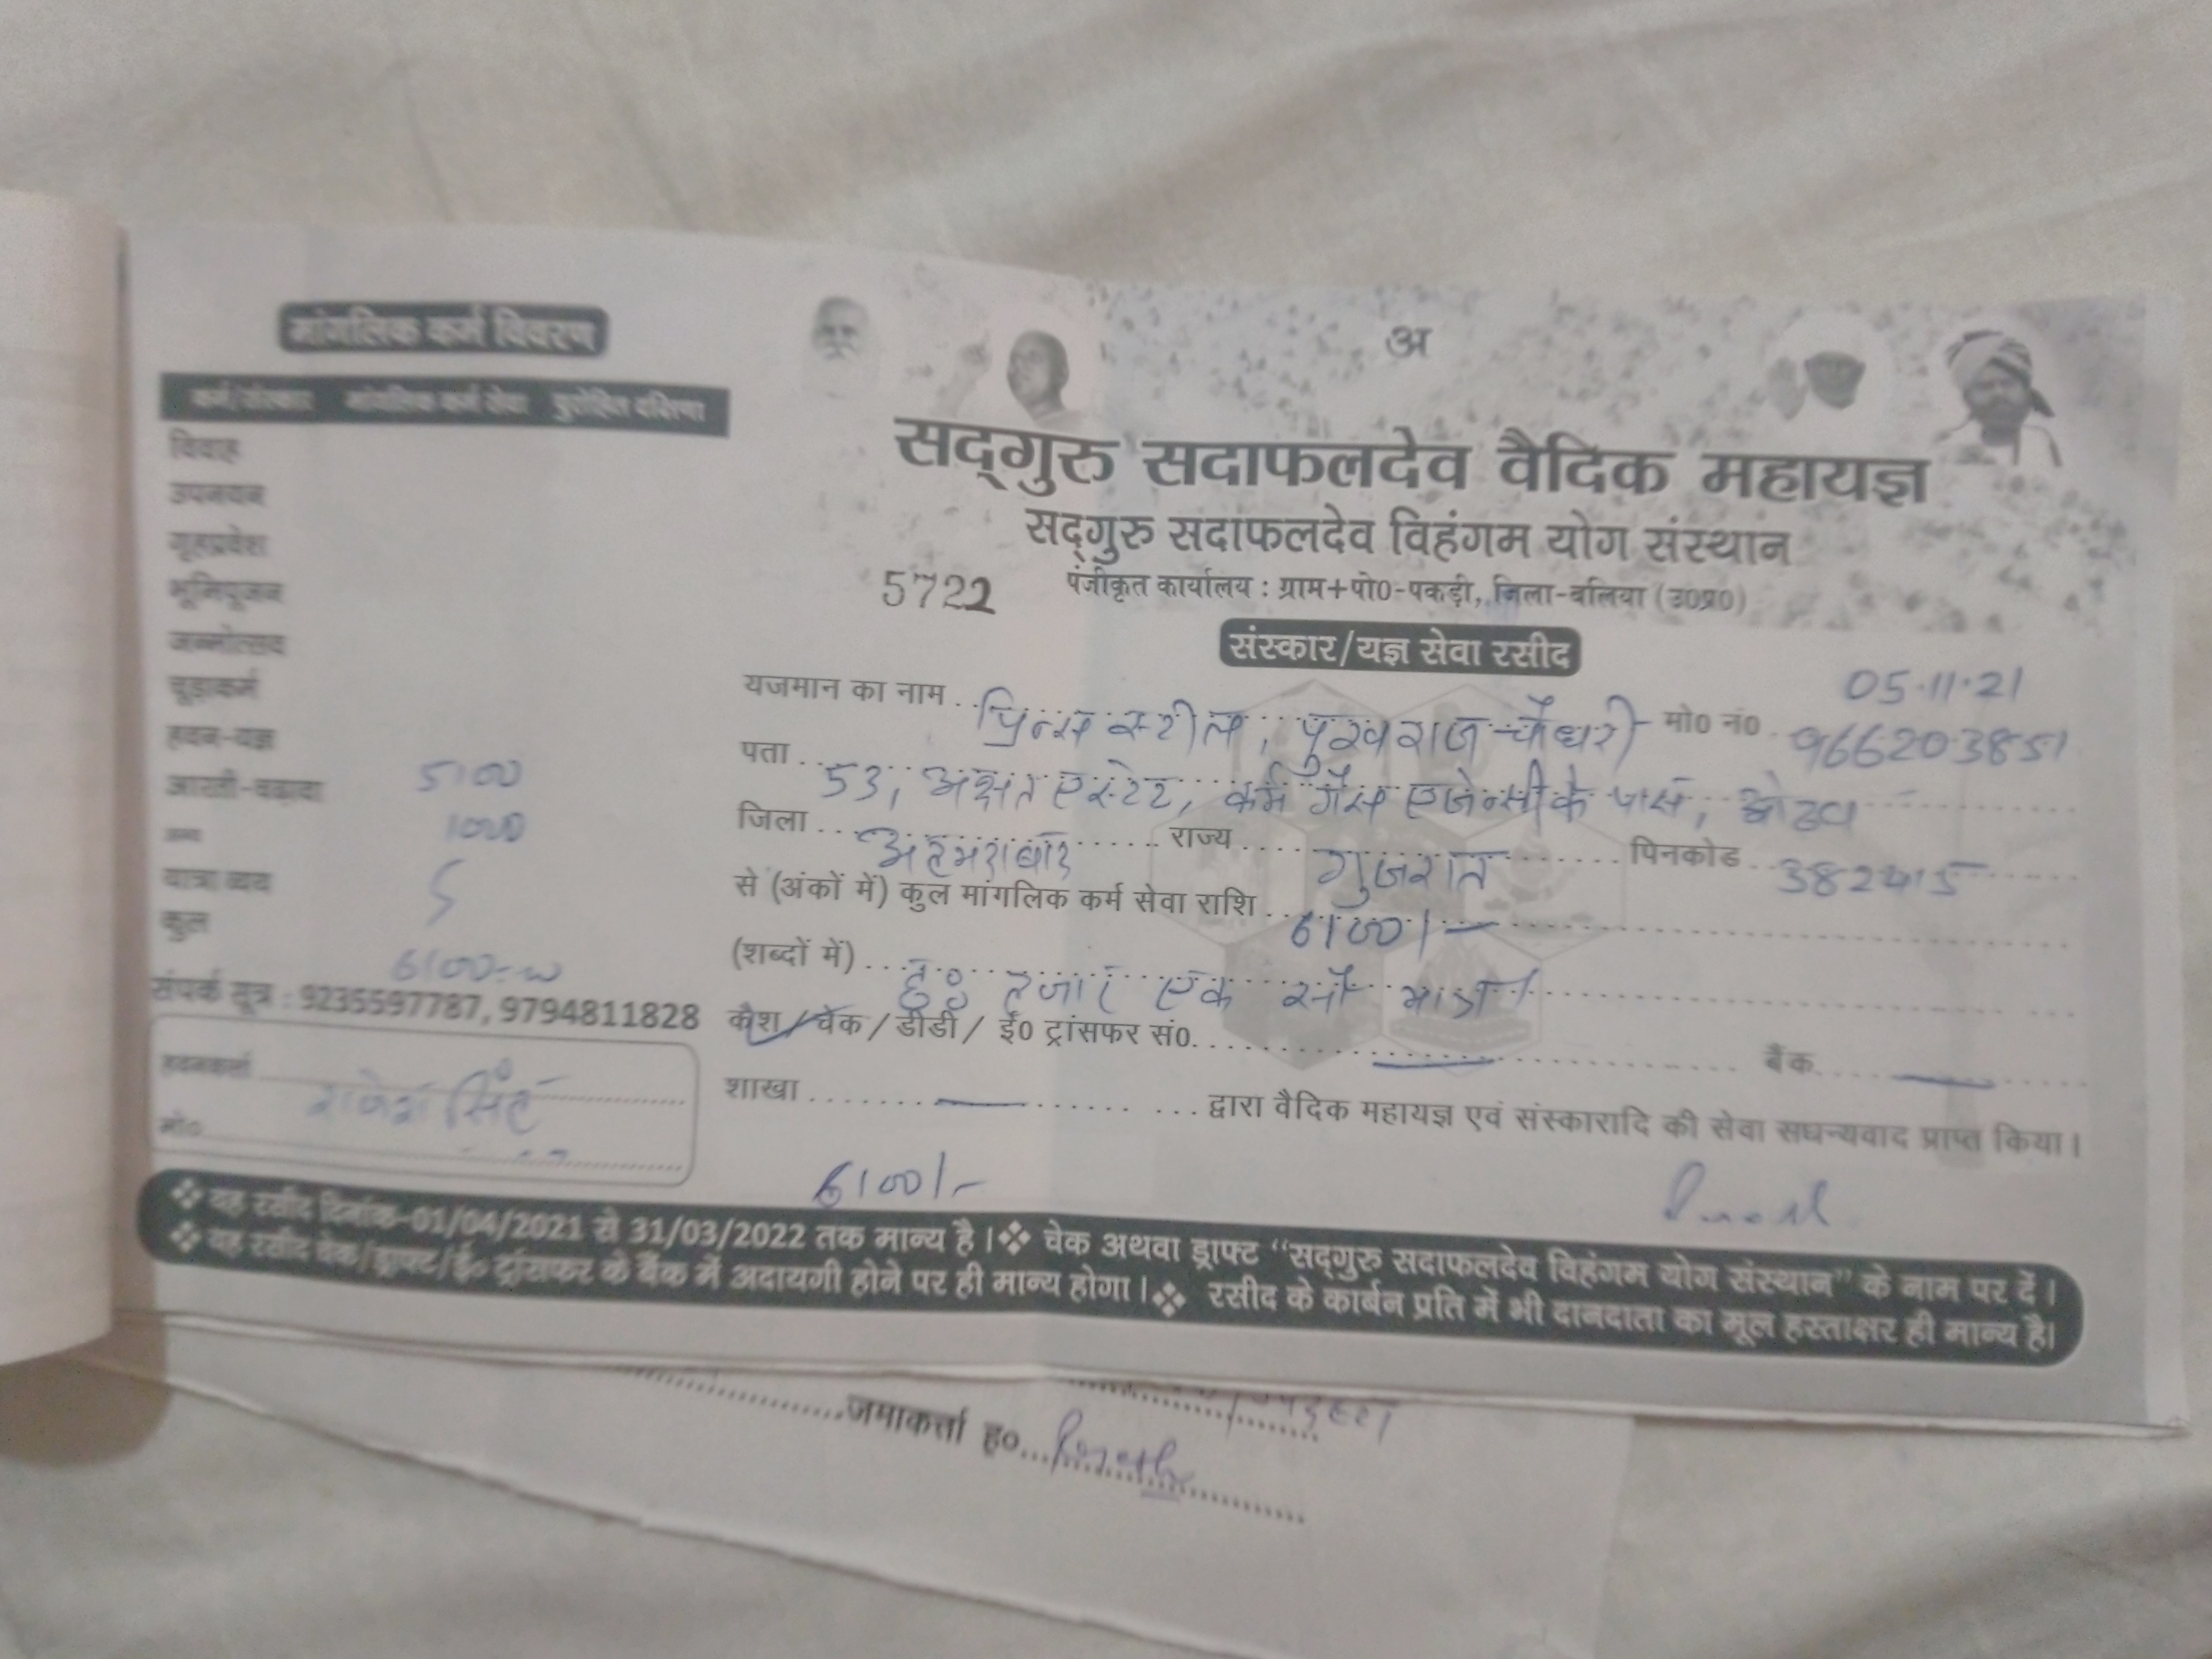 मांगलिक कर्म विवरण
कर्म/संस्कार मांगलिक कर्म सेवा पुरोहित दक्षिणा
विवाह
उपनयन
गृहप्रवेश
भूमिपूजन
जन्मोत्सव
चूड़ाकर्म
हवन-यज्ञ
आरती-चढ़ावा 5100
अन्य 1000
यात्रा व्यय
कुल 6100
संपर्क सूत्र : 9235597787, 9794811828
हवनकर्ता राकेश सिंह
मो०
अ
सद्गुरु सदाफलदेव वैदिक महायज्ञ
सद्गुरु सदाफलदेव विहंगम योग संस्थान
5722 पंजीकृत कार्यालय : ग्राम+पो0-पकड़ी, जिला-बलिया (उ0प्र0)
संस्कार/यज्ञ सेवा रसीद
05.11.21
यजमान का नाम प्रिन्स स्टील, पुखराज चौधरी मो0 नं0 966203851
पता 53, अक्षत एस्टेट, कर्म गैस एजेन्सी के पास, ओढव
जिला अहमदाबाद राज्य गुजरात पिनकोड 382415
से (अंकों में) कुल मांगलिक कर्म सेवा राशि 6100/-
(शब्दों में) छः हजार एक सौ मात्र
कैश/चेक/डीडी/ ई0 ट्रांसफर सं0 बैंक
शाखा द्वारा वैदिक महायज्ञ एवं संस्कारादि की सेवा सधन्यवाद प्राप्त किया।
6100/-
❖ यह रसीद दिनांक-01/04/2021 से 31/03/2022 तक मान्य है। ❖ चेक अथवा ड्राफ्ट "सद्गुरु सदाफलदेव विहंगम योग संस्थान" के नाम पर दें।
❖ यह रसीद चेक/ड्राफ्ट/ई० ट्रांसफर के बैंक में अदायगी होने पर ही मान्य होगा। ❖ रसीद के कार्बन प्रति में भी दानदाता का मूल हस्ताक्षर ही मान्य है।
जमाकर्त्ता ह०